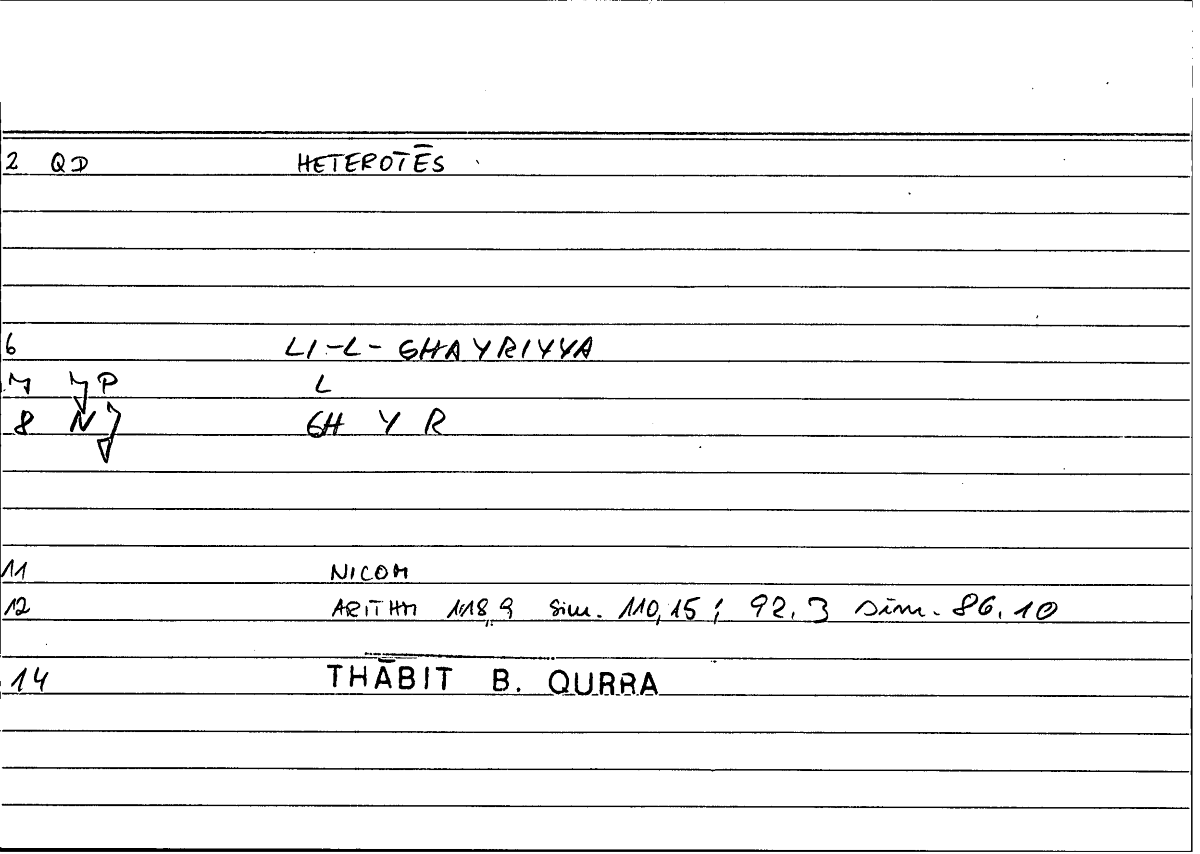 2 QD HETEROTĒS
6 LI-L-GHAYRIYYA
7 P L
8 N GH Y R
11 NICOM
12 ARITHM 118,9 sim. 110,15; 92.3 sim. 86.10
14 THĀBIT B. QURRA